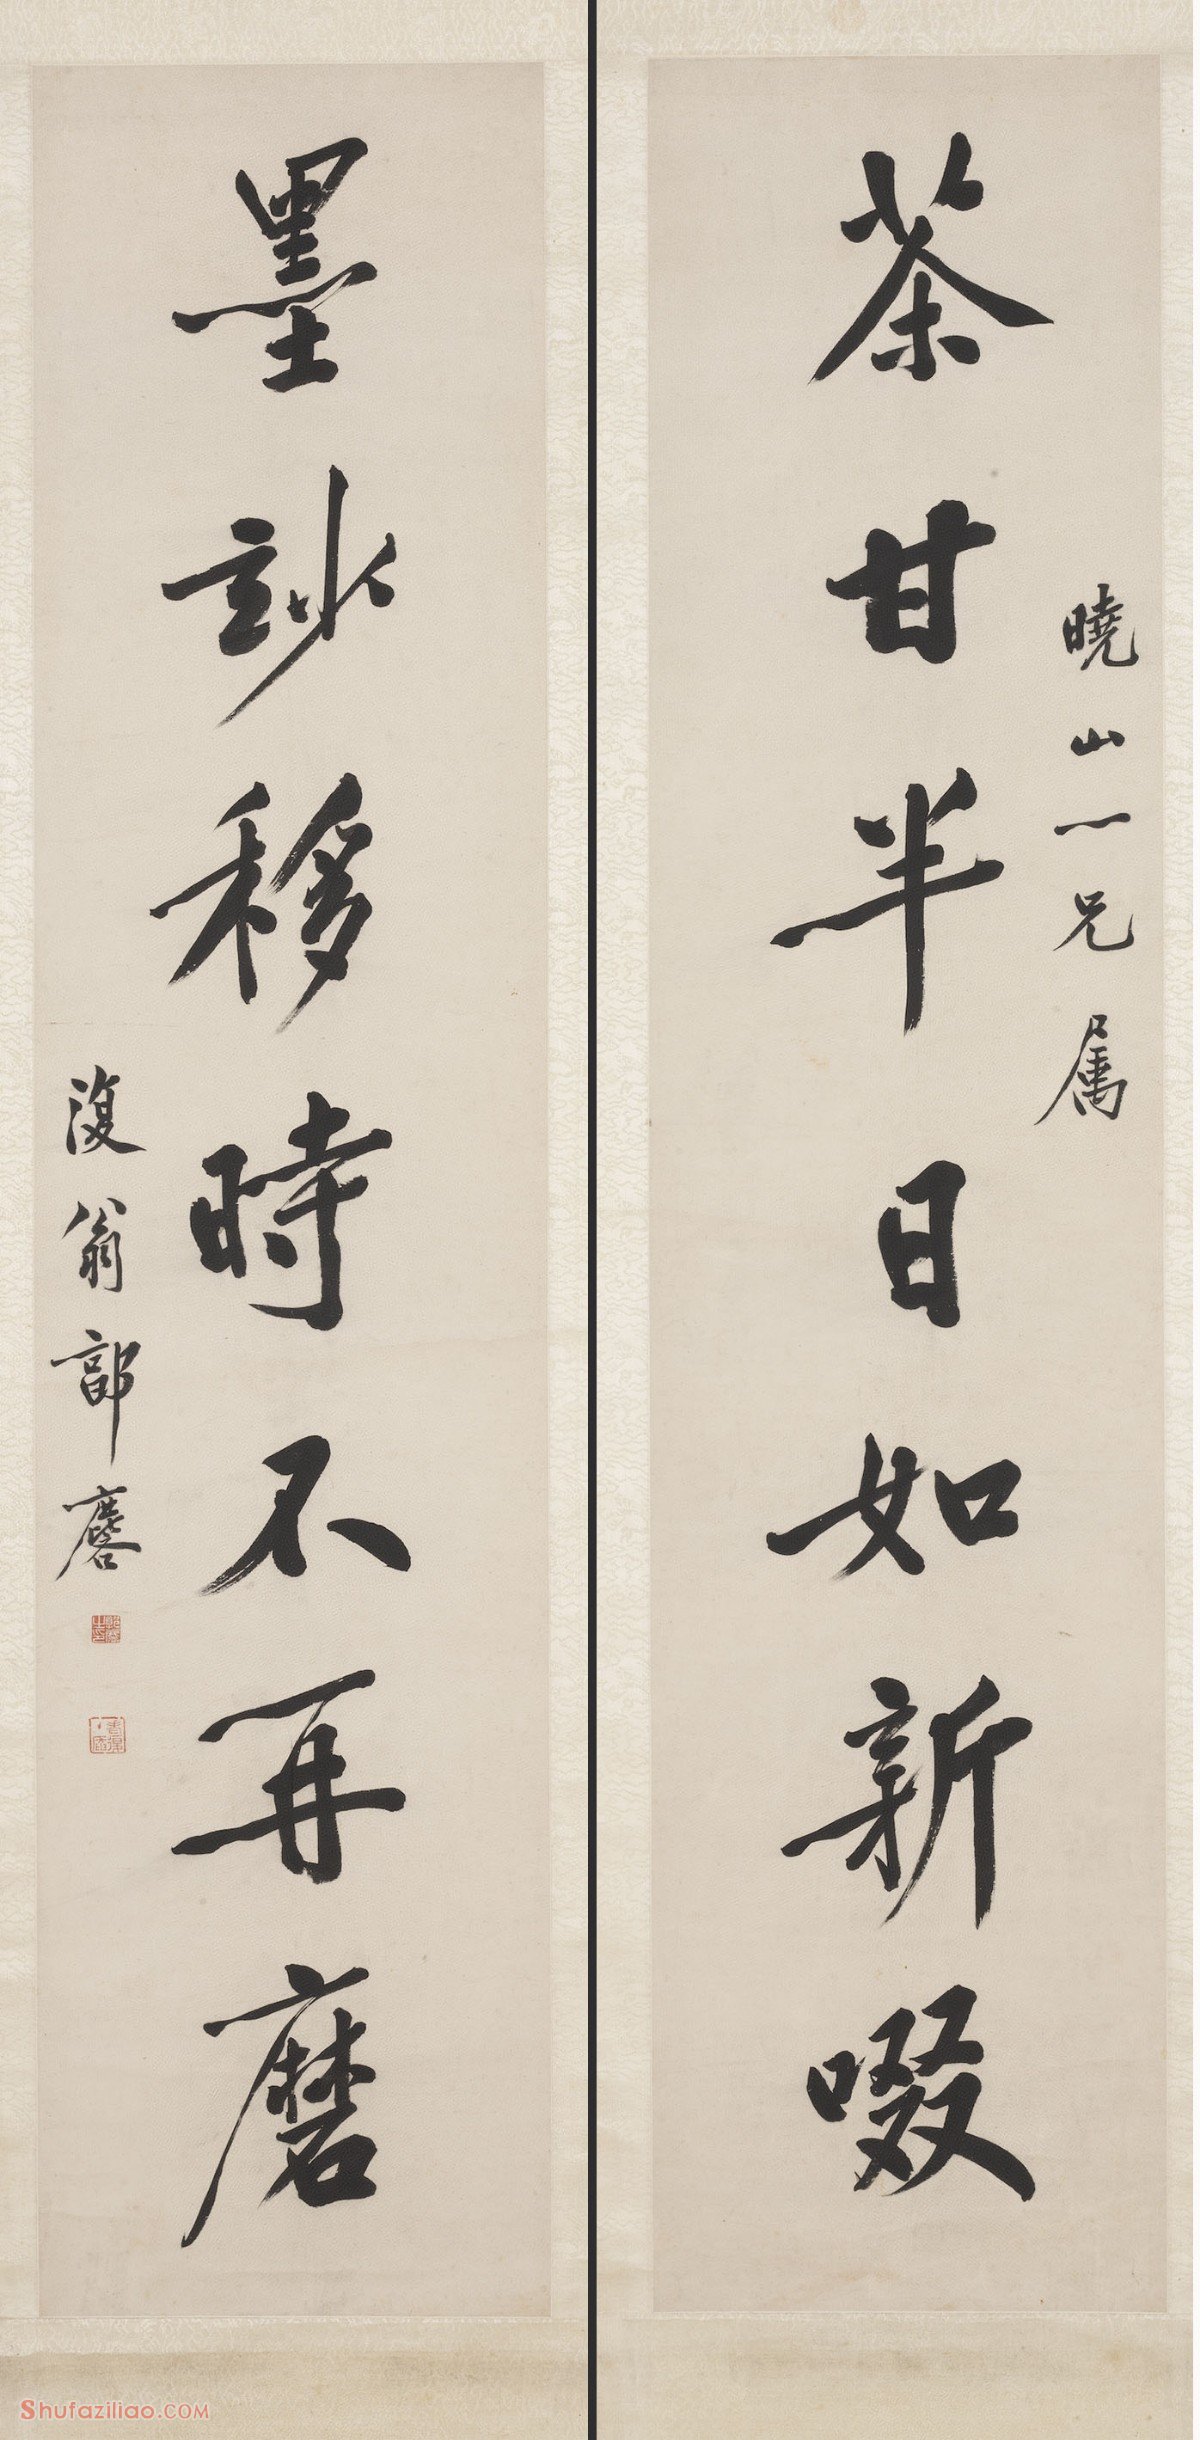 曉山一兄属
茶甘半日如新啜
墨玅移時不再磨
復翁郭麐
Shufaziliao.COM